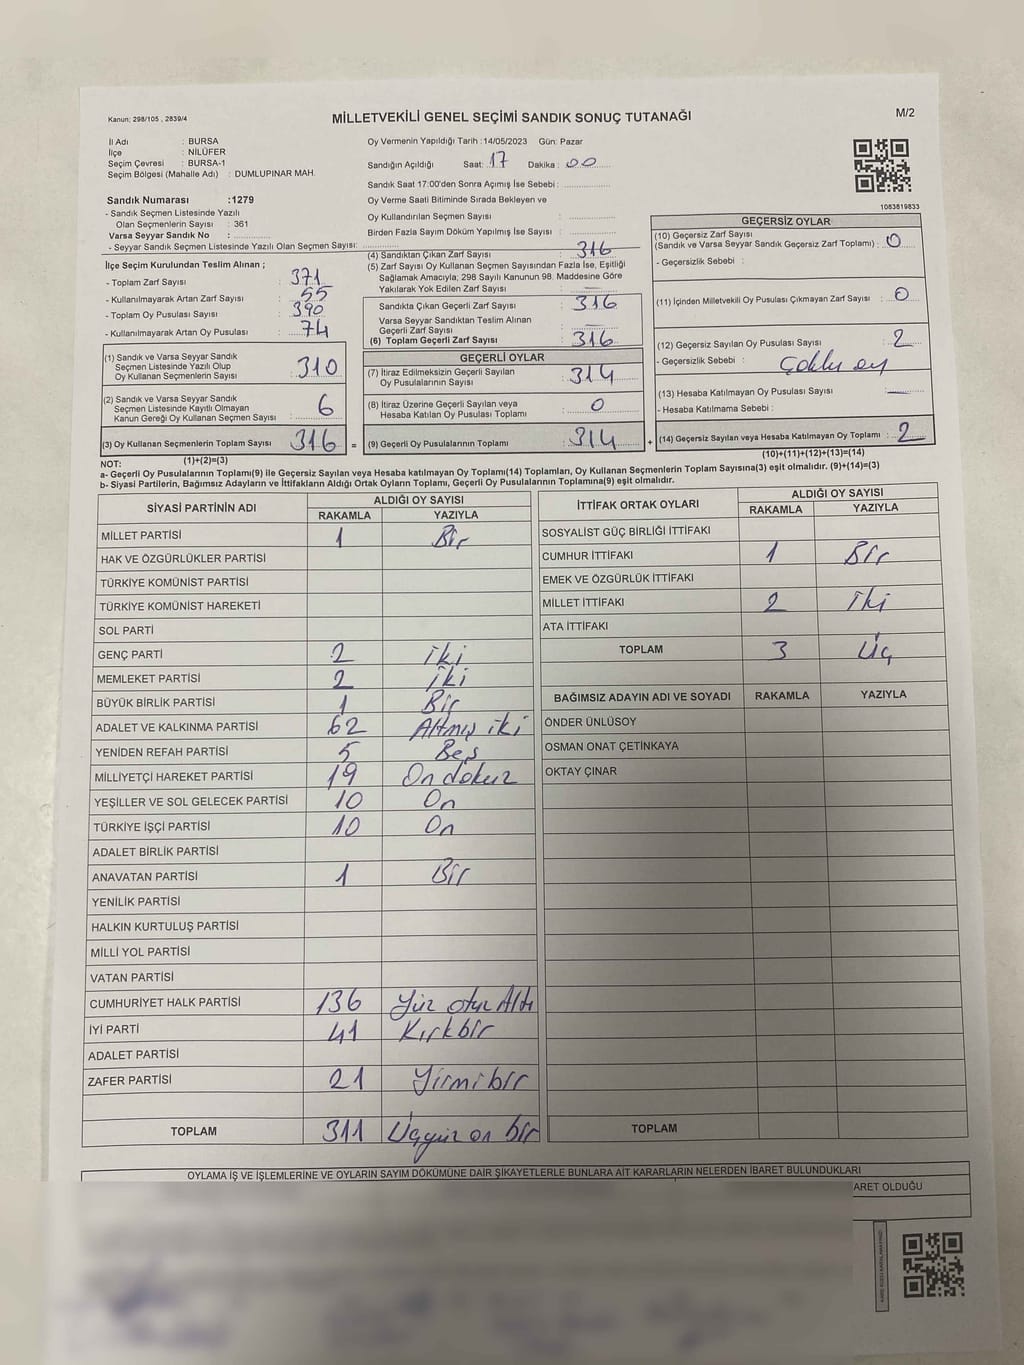 Kanun: 298/105 , 2839/4
MİLLETVEKİLİ GENEL SEÇİMİ SANDIK SONUÇ TUTANAĞI
M/2
İl Adı : BURSA
İlçe : NİLÜFER
Seçim Çevresi : BURSA-1
Seçim Bölgesi (Mahalle Adı) : DUMLUPINAR MAH.
Sandık Numarası :1279
- Sandık Seçmen Listesinde Yazılı
Olan Seçmenlerin Sayısı : 361
Varsa Seyyar Sandık No : ..............
- Seyyar Sandık Seçmen Listesinde Yazılı Olan Seçmen Sayısı: ..............
Oy Vermenin Yapıldığı Tarih :14/05/2023 Gün: Pazar
Sandığın Açıldığı Saat: 17 Dakika : 00
Sandık Saat 17:00'den Sonra Açımış İse Sebebi : ..............
Oy Verme Saati Bitiminde Sırada Bekleyen ve
Oy Kullandırılan Seçmen Sayısı : ..............
Birden Fazla Sayım Döküm Yapılmış İse Sayısı : ..............
1083819833
İlçe Seçim Kurulundan Teslim Alınan ;
- Toplam Zarf Sayısı : 371
- Kullanılmayarak Artan Zarf Sayısı : 55
- Toplam Oy Pusulası Sayısı : 390
- Kullanılmayarak Artan Oy Pusulası : 74
(1) Sandık ve Varsa Seyyar Sandık
Seçmen Listesinde Yazılı Olup
Oy Kullanan Seçmenlerin Sayısı : 310
(2) Sandık ve Varsa Seyyar Sandık
Seçmen Listesinde Kayıtlı Olmayan
Kanun Gereği Oy Kullanan Seçmen Sayısı : 6
(3) Oy Kullanan Seçmenlerin Toplam Sayısı 316 =
(1)+(2)=(3)
(4) Sandıktan Çıkan Zarf Sayısı : 316
(5) Zarf Sayısı Oy Kullanan Seçmen Sayısından Fazla İse, Eşitliği
Sağlamak Amacıyla; 298 Sayılı Kanunun 98. Maddesine Göre
Yakılarak Yok Edilen Zarf Sayısı : —
Sandıkta Çıkan Geçerli Zarf Sayısı : 316
Varsa Seyyar Sandıktan Teslim Alınan
Geçerli Zarf Sayısı : —
(6) Toplam Geçerli Zarf Sayısı : 316
GEÇERLİ OYLAR
(7) İtiraz Edilmeksizin Geçerli Sayılan
Oy Pusulalarının Sayısı : 314
(8) İtiraz Üzerine Geçerli Sayılan veya
Hesaba Katılan Oy Pusulası Toplamı : 0
(9) Geçerli Oy Pusulalarının Toplamı : 314 +
GEÇERSİZ OYLAR
(10) Geçersiz Zarf Sayısı
(Sandık ve Varsa Seyyar Sandık Geçersiz Zarf Toplamı) : 0
- Geçersizlik Sebebi :
(11) İçinden Milletvekili Oy Pusulası Çıkmayan Zarf Sayısı : 0
(12) Geçersiz Sayılan Oy Pusulası Sayısı : 2
- Geçersizlik Sebebi : Çoklu oy
(13) Hesaba Katılmayan Oy Pusulası Sayısı : —
- Hesaba Katılmama Sebebi :
(14) Geçersiz Sayılan veya Hesaba Katılmayan Oy Toplamı : 2
(10)+(11)+(12)+(13)=(14)
NOT:
a- Geçerli Oy Pusulalarının Toplamı(9) ile Geçersiz Sayılan veya Hesaba katılmayan Oy Toplamı(14) Toplamları, Oy Kullanan Seçmenlerin Toplam Sayısına(3) eşit olmalıdır. (9)+(14)=(3)
b- Siyasi Partilerin, Bağımsız Adayların ve İttifakların Aldığı Ortak Oyların Toplamı, Geçerli Oy Pusulalarının Toplamına(9) eşit olmalıdır.
SİYASİ PARTİNİN ADI ALDIĞI OY SAYISI
RAKAMLA YAZIYLA
MİLLET PARTİSİ 1 Bir
HAK VE ÖZGÜRLÜKLER PARTİSİ
TÜRKİYE KOMÜNİST PARTİSİ
TÜRKİYE KOMÜNİST HAREKETİ
SOL PARTİ
GENÇ PARTİ 2 iki
MEMLEKET PARTİSİ 2 iki
BÜYÜK BİRLİK PARTİSİ 1 Bir
ADALET VE KALKINMA PARTİSİ 62 Altmış iki
YENİDEN REFAH PARTİSİ 5 Beş
MİLLİYETÇİ HAREKET PARTİSİ 19 On dokuz
YEŞİLLER VE SOL GELECEK PARTİSİ 10 On
TÜRKİYE İŞÇİ PARTİSİ 10 On
ADALET BİRLİK PARTİSİ
ANAVATAN PARTİSİ 1 Bir
YENİLİK PARTİSİ
HALKIN KURTULUŞ PARTİSİ
MİLLİ YOL PARTİSİ
VATAN PARTİSİ
CUMHURİYET HALK PARTİSİ 136 Yüz otuz Altı
İYİ PARTİ 41 Kırkbir
ADALET PARTİSİ
ZAFER PARTİSİ 21 Yirmibir
TOPLAM 311 Üçyüz on bir
İTTİFAK ORTAK OYLARI ALDIĞI OY SAYISI
RAKAMLA YAZIYLA
SOSYALİST GÜÇ BİRLİĞİ İTTİFAKI
CUMHUR İTTİFAKI 1 Bir
EMEK VE ÖZGÜRLÜK İTTİFAKI
MİLLET İTTİFAKI 2 İki
ATA İTTİFAKI
TOPLAM 3 Üç
BAĞIMSIZ ADAYIN ADI VE SOYADI RAKAMLA YAZIYLA
ÖNDER ÜNLÜSOY
OSMAN ONAT ÇETİNKAYA
OKTAY ÇINAR
TOPLAM
OYLAMA İŞ VE İŞLEMLERİNE VE OYLARIN SAYIM DÖKÜMÜNE DAİR ŞİKAYETLERLE BUNLARA AİT KARARLARIN NELERDEN İBARET BULUNDUKLARI
ARET OLDUĞU